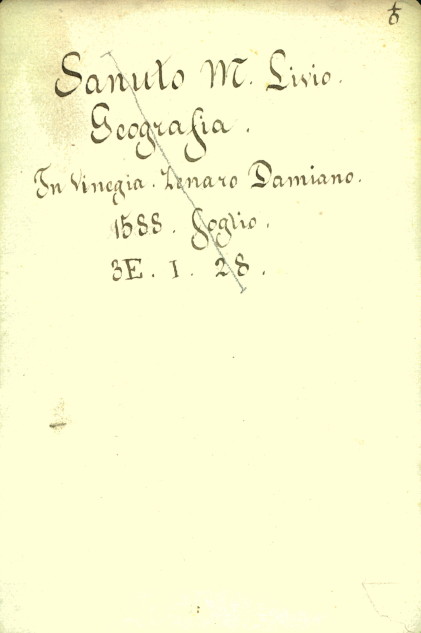 Sanuto M. Livio.
Geografia.
In Vinegia. Zenaro Damiano.
1588. foglio.
3E. I. 28.